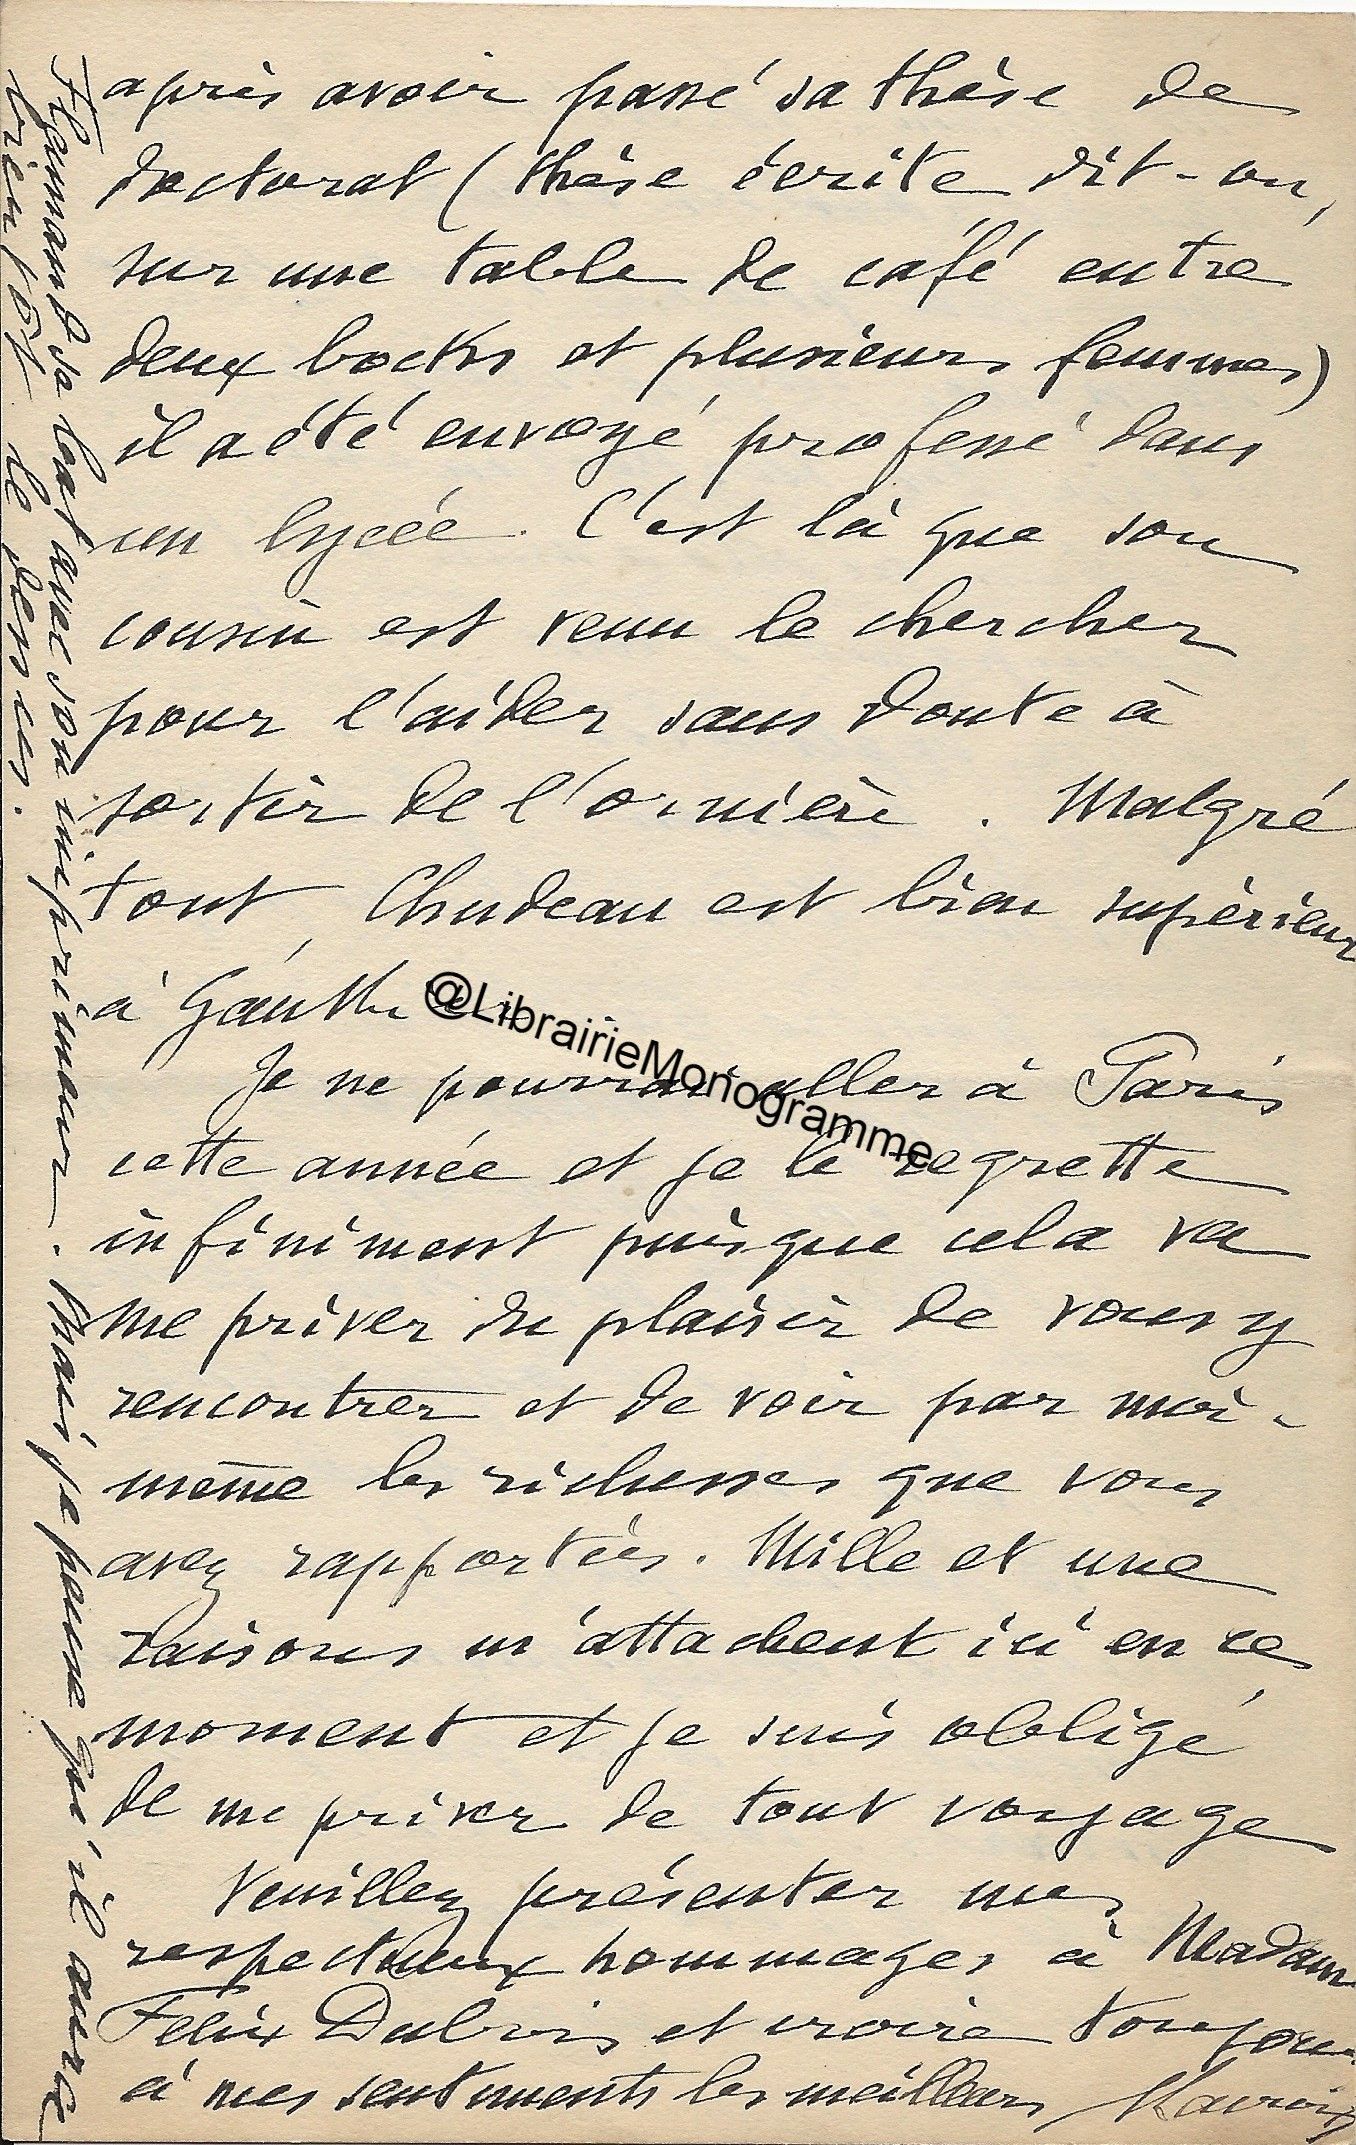 après avoir passé sa thèse de
doctorat (thèse écrite dit-on,
sur une table de café entre
deux bocks et plusieurs femmes)
il a été envoyé professé dans
un lycée. C'est là que son
cousin est venu le chercher
pour l'aider sans doute à
sortir de l'ornière. Malgré
tout Chudeau est bien supérieur
à Gauthier
@LibrairieMonogramme
Je ne pourrai aller à Paris
cette année et je le regrette
infiniment puisque cela va
me priver du plaisir de vous y
rencontrer et de voir par moi-
même les richesses que vous
avez rapportées. Mille et une
raisons m'attachent ici en ce
moment et je suis obligé
de me priver de tout voyage
Veuillez présenter mes
respectueux hommages à Madame
Félix Dubois et croire toujours
à mes sentiments les meilleurs
Flamand se bat avec son imprimeur. Mais je pense qu'il aura
bientôt le dessus.